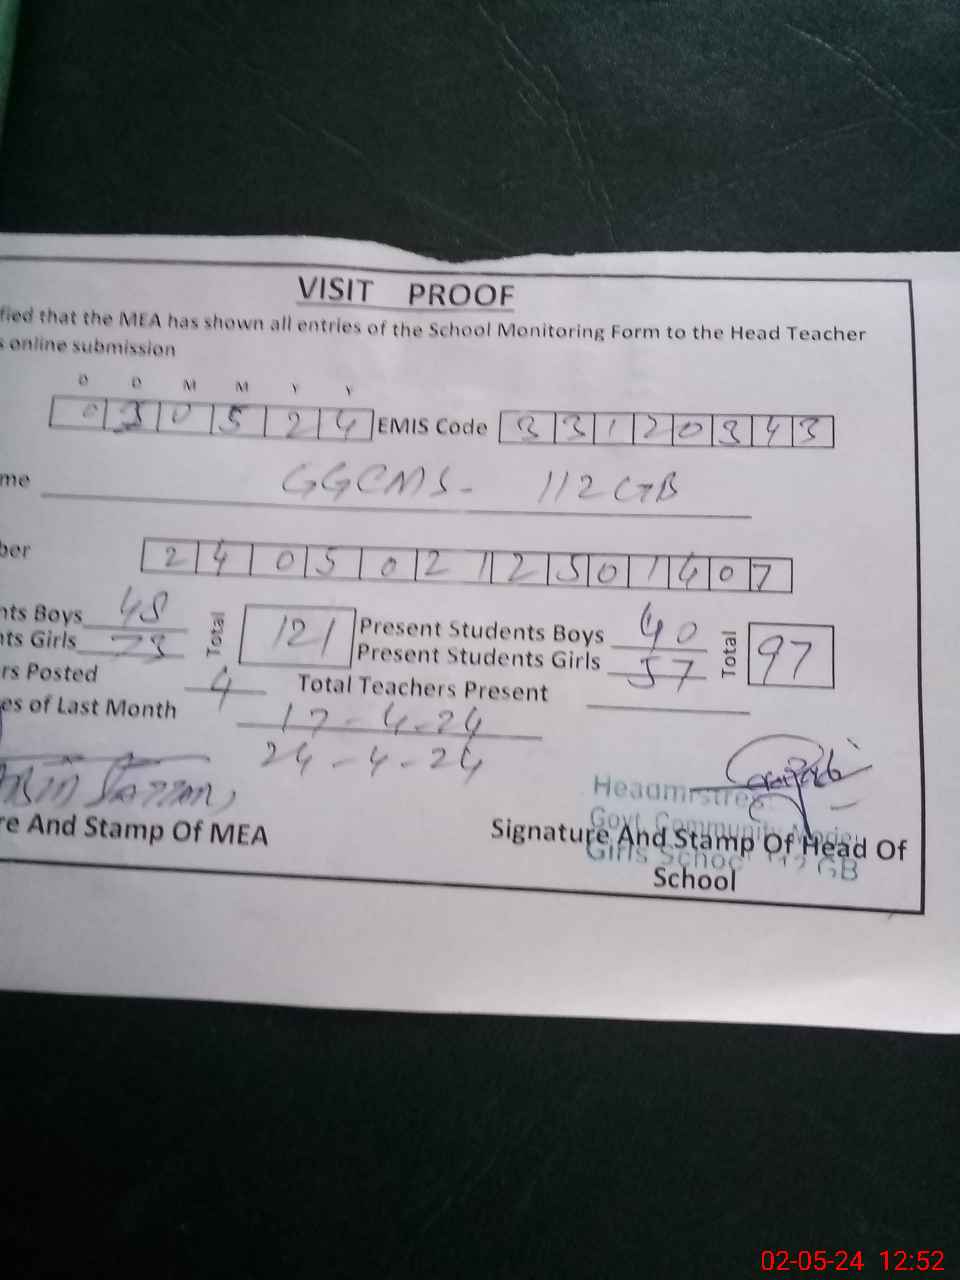 VISIT PROOF
fied that the MEA has shown all entries of the School Monitoring Form to the Head Teacher
s online submission
D D M M Y Y
0 3 0 5 2 4 EMIS Code 3 3 1 2 0 3 4 3
me GGCMS- 112 GB
ber 2 4 0 5 0 2 1 2 5 0 1 4 0 7
nts Boys 48 Total 121 Present Students Boys 40 Total 97
nts Girls 73 Present Students Girls 57
rs Posted 4 Total Teachers Present
es of Last Month 17-4-24
24-4-24
Headmistres
Govt. Community Model
Girls School 112 GB
re And Stamp Of MEA
Signature And Stamp Of Head Of
School
02-05-24 12:52